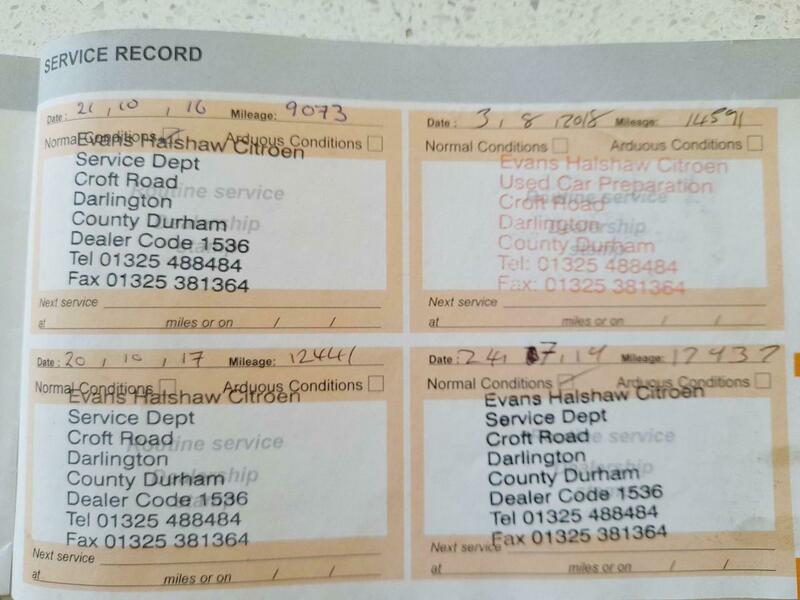 SERVICE RECORD
Date: 21, 10, 16 Mileage: 9073
Normal Conditions Arduous Conditions
Evans Halshaw Citroen
Service Dept
Croft Road
Darlington
County Durham
Dealer Code 1536
Tel 01325 488484
Fax 01325 381364
Routine service
Dealership
stamp
Next service
at miles or on / /
Date: 3, 8, 2018 Mileage: 14591
Normal Conditions Arduous Conditions
Evans Halshaw Citroen
Used Car Preparation
Croft Road
Darlington
County Durham
Tel: 01325 488484
Fax: 01325 381364
Routine service
Dealership
stamp
Next service
at miles or on / /
Date: 20, 10, 17 Mileage: 12441
Normal Conditions Arduous Conditions
Evans Halshaw Citroen
Service Dept
Croft Road
Darlington
County Durham
Dealer Code 1536
Tel 01325 488484
Fax 01325 381364
Routine service
Dealership
stamp
Next service
at miles or on / /
Date: 24, 7, 19 Mileage: 17937
Normal Conditions Arduous Conditions
Evans Halshaw Citroen
Service Dept
Croft Road
Darlington
County Durham
Dealer Code 1536
Tel 01325 488484
Fax 01325 381364
Routine service
Dealership
stamp
Next service
at miles or on / /